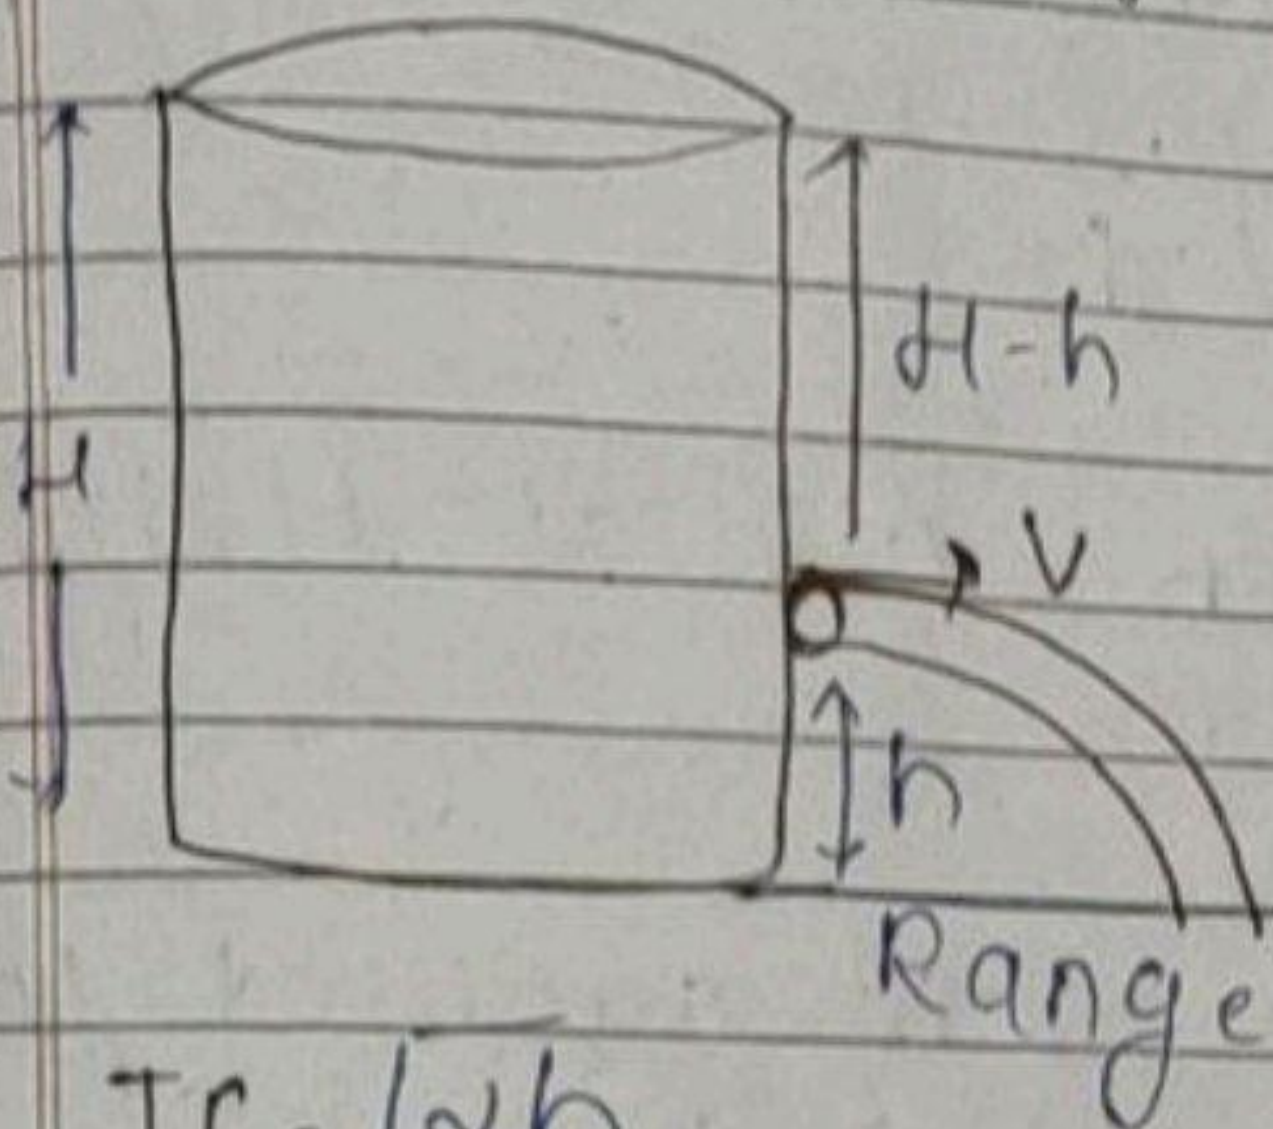 H-h
H
V
h
Range